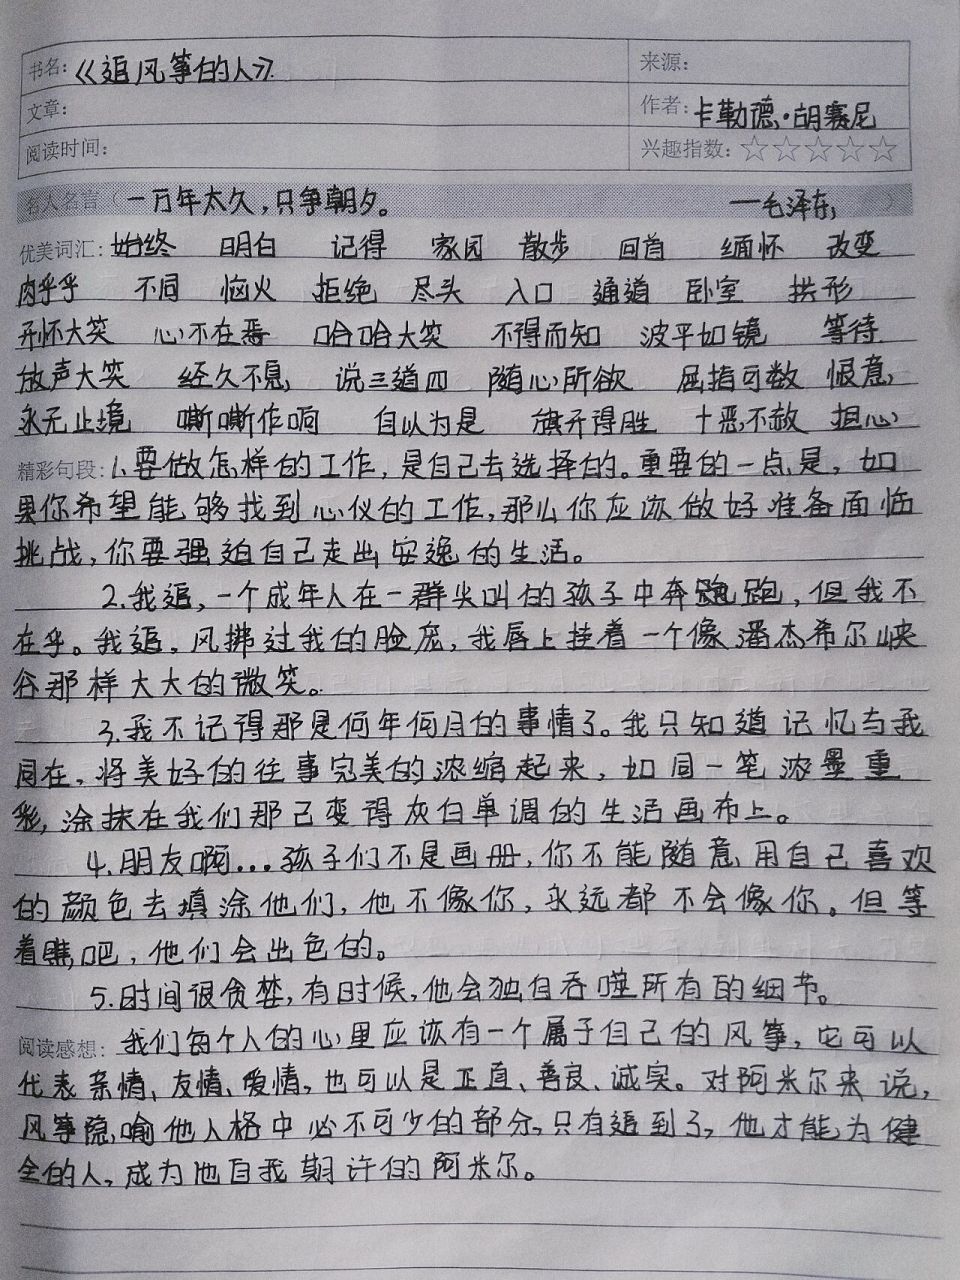 书名：《追风筝的人》 来源：
文章： 作者：卡勒德·胡赛尼
阅读时间： 兴趣指数：☆☆☆☆☆
名人名言 一万年太久，只争朝夕。 —毛泽东
优美词汇：始终 明白 记得 家园 散步 回首 缅怀 改变
肉乎乎 不同 恼火 拒绝 尽头 入口 通道 卧室 拱形
开怀大笑 心不在焉 哈哈大笑 不得而知 波平如镜 等待
放声大笑 经久不息 说三道四 随心所欲 屈指可数 恨意
永无止境 嘶嘶作响 自以为是 旗开得胜 十恶不赦 担心
精彩句段：1.要做怎样的工作，是自己去选择的。重要的一点是，如
果你希望能够找到心仪的工作，那么你应该做好准备面临
挑战，你要强迫自己走出安逸的生活。
2.我追，一个成年人在一群尖叫的孩子中奔跑，但我不
在乎。我追，风拂过我的脸庞，我唇上挂着一个像潘杰希尔峡
谷那样大大的微笑。
3.我不记得那是何年何月的事情了。我只知道记忆与我
同在，将美好的往事完美的浓缩起来，如同一笔浓墨重
彩，涂抹在我们那已变得灰白单调的生活画布上。
4.朋友啊...孩子们不是画册，你不能随意用自己喜欢
的颜色去填涂他们，他不像你，永远都不会像你。但等
着瞧吧，他们会出色的。
5.时间很贪婪，有时候，他会独自吞噬所有的细节。
阅读感想：我们每个人的心里应该有一个属于自己的风筝，它可以
代表亲情、友情、爱情，也可以是正直、善良、诚实。对阿米尔来说，
风筝隐喻他人格中必不可少的部分，只有追到了，他才能为健
全的人，成为他自我期许的阿米尔。